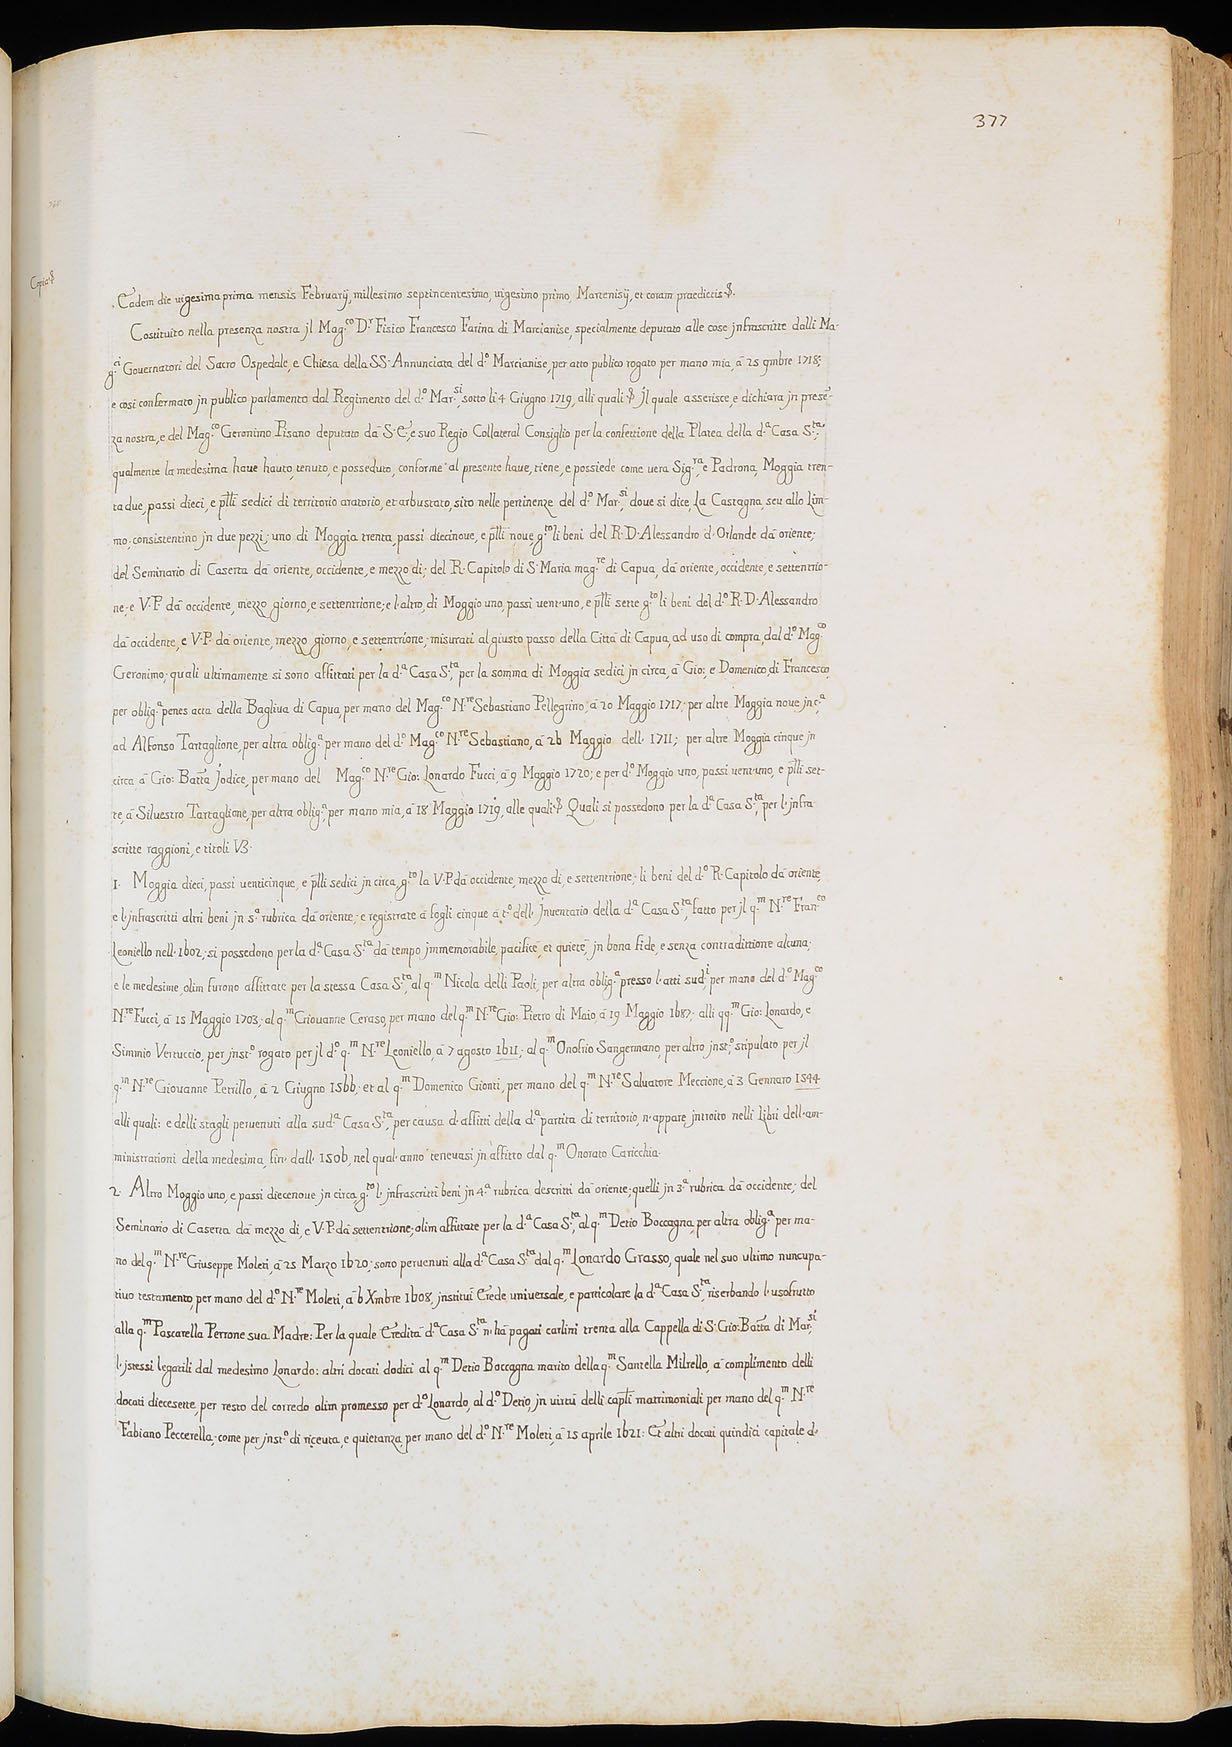 377
Copia
Eadem die uigesima prima mensis Februarij, millesimo septincentesimo, uigesimo primo, Martenisij, et coram praedictis
Costituito nella presenza nostra jl Mag.co D.r Fisico Francesco Farina di Marcianise, specialmente deputato alle cose jnfrascritte dalli Ma-
g.ci Gouernatori del Sacro Ospedale, e Chiesa della SS. Annunciata del d.o Marcianise, per atto publico rogato per mano mia, à 25 9mbre 1718;
e così confermato jn publico parlamento dal Regimento del d.o Mar.si, sotto li 4 Giugno 1719, alli quali jl quale asserisce, e dichiara jn presen̄-
za nostra, e del Mag.co Geronimo Pisano deputato dà S. E., e suo Regio Collateral Consiglio per la confettione della Platea della d.a Casa S.ta,
qualmente la medesima haue hauto, tenuto, e posseduto, conforme al presente haue, tiene, e possiede come uera Sig.ra, e Padrona, Moggia tren-
ta due, passi dieci, e p̄lli sedici di territorio aratorio, et arbustato, sito nelle pertinenze del d.o Mar.si, doue si dice, La Castagna, seu allo Lim-
mo, consistentino jn due pezzi; uno di Moggia trenta, passi diecinoue, e p̄lli noue, g.to li beni del R. D. Alessandro d'Orlande dà oriente;
del Seminario di Caserta dà oriente, occidente, e mezzo dì; del R. Capitolo di S. Maria mag.re di Capua, dà oriente, occidente, e settentrio-
ne; e V. P. dà occidente, mezzo giorno, e settentrione; e l'altro, di Moggio uno, passi uent'uno, e p̄lli sette g.to li beni del d.o R. D. Alessandro
dà occidente, e V. P. dà oriente, mezzo giorno, e settentrione; misurati al giusto passo della Città di Capua, ad uso di compra, dal d.o Mag.co
Geronimo; quali ultimamente si sono affittati per la d.a Casa S.ta, per la somma di Moggia sedici jn circa, à Gio: e Domenico, di Francesco,
per oblig.a penes acta della Bagliua di Capua, per mano del Mag.co N.re Sebastiano Pellegrino, à 20 Maggio 1717; per altre Moggia noue jn c.a
ad Alfonso Tartaglione, per altra oblig.a per mano del d.o Mag.co N.re Sebastiano, à 26 Maggio dell' 1711; per altre Moggia cinque jn
circa, à Gio: Batt̄a Jodice, per mano del Mag.co N.re Gio: Lonardo Fucci, à 9 Maggio 1720; e per d.o Moggio uno, passi uent'uno, e p̄lli set-
te, à Siluestro Tartaglione, per altra oblig.a per mano mia, à 18 Maggio 1719, alle quali Quali si possedono per la d.a Casa S.ta per l'jnfra
scritte raggioni, e titoli V3.
1. Moggia dieci, passi uenticinque, e p̄lli sedici jn circa, g.to la V. P. dà occidente, mezzo dì, e settentrione; li beni del d.o R. Capitolo dà oriente,
e l'jnfrascritti altri beni jn s.a rubrica dà oriente; e registrate à fogli cinque à t.o dell' Jnuentario della d.a Casa S.ta, fatto per jl q.m N.re Fran.co
Leoniello nell' 1602; si possedono per la d.a Casa S.ta dà tempo jmmemorabile, pacificè, et quietè, jn bona fide, e senza contradittione alcuna;
e le medesime, olim furono affittate per la stessa Casa S.ta, al q.m Nicola delli Paoli, per altra oblig.a presso l'atti sud.i per mano del d.o Mag.co
N.re Fucci, à 15 Maggio 1703; al q.m Giouanne Ceraso, per mano del q.m N.re Gio: Pietro di Maio, à 19 Maggio 1687; alli qq.m Gio: Lonardo, e
Siminio Vertuccio, per jnst.o rogato per jl d.o q.m N.re Leoniello, à 7 agosto 1611; al q.m Onofrio Sangermano, per altro jnst.o stipulato per jl
q.m N.re Giouanne Petrillo, à 2 Giugno 1566; et al q.m Domenico Gionti, per mano del q.m N.re Saluatore Meccione, à 3 Gennaro 1544
alli quali: e delli stagli peruenuti alla sud.a Casa S.ta, per causa d'affitti della d.a partita di territorio, n'appare jntroito nelli Libri dell'am-
ministrationi della medesima, fin' dall' 1506, nel qual'anno teneuasi jn affitto dal q.m Onorato Caricchia.
2. Altro Moggio uno, e passi diecenoue jn circa, g.to l'jnfrascritti beni jn 4.a rubrica descritti dà oriente; quelli jn 3.a rubrica dà occidente; del
Seminario di Caserta dà mezzo dì, e V. P. dà settentrione; olim affittate per la d.a Casa S.ta, al q.m Detio Boccagna, per altra oblig.a per ma-
no del q.m N.re Giuseppe Moleti, à 25 Marzo 1620; sono peruenuti alla d.a Casa S.ta dal q.m Lonardo Grasso, quale nel suo ultimo nuncupa-
tiuo testamento, per mano del d.o N.re Moleti, à 6 Xmbre 1608, jnstituì Erede uniuersale, e particolare la d.a Casa S.ta, riserbando l'usofrutto
alla q.m Pascarella Perrone sua Madre: Per la quale Eredità d.a Casa S.ta n'hà pagati carlini trenta alla Cappella di S. Gio: Batt̄a di Mar.si
l'jstessi legatili dal medesimo Lonardo: altri docati dodici al q.m Detio Boccagna marito della q.m Santella Milrello, à complimento delli
docati diecesette, per resto del corredo olim promesso per d.o Lonardo, al d.o Detio, jn uirtù delli cap̄tli matrimoniali per mano del q.m N.re
Fabiano Peccerella, come per jnst.o di riceuta, e quietanza per mano del d.o N.re Moleti, à 15 aprile 1621: Et altri docati quindici capitale d'